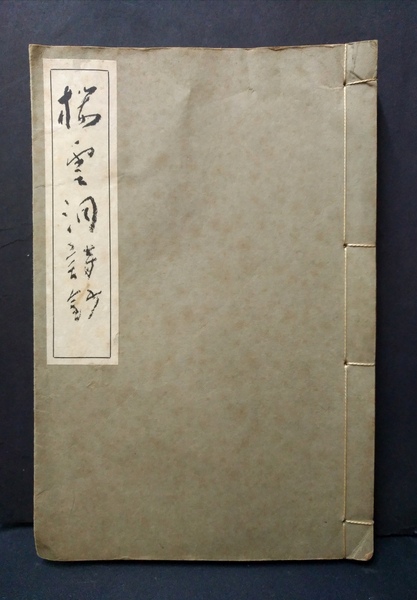 櫻雲洞詩鈔